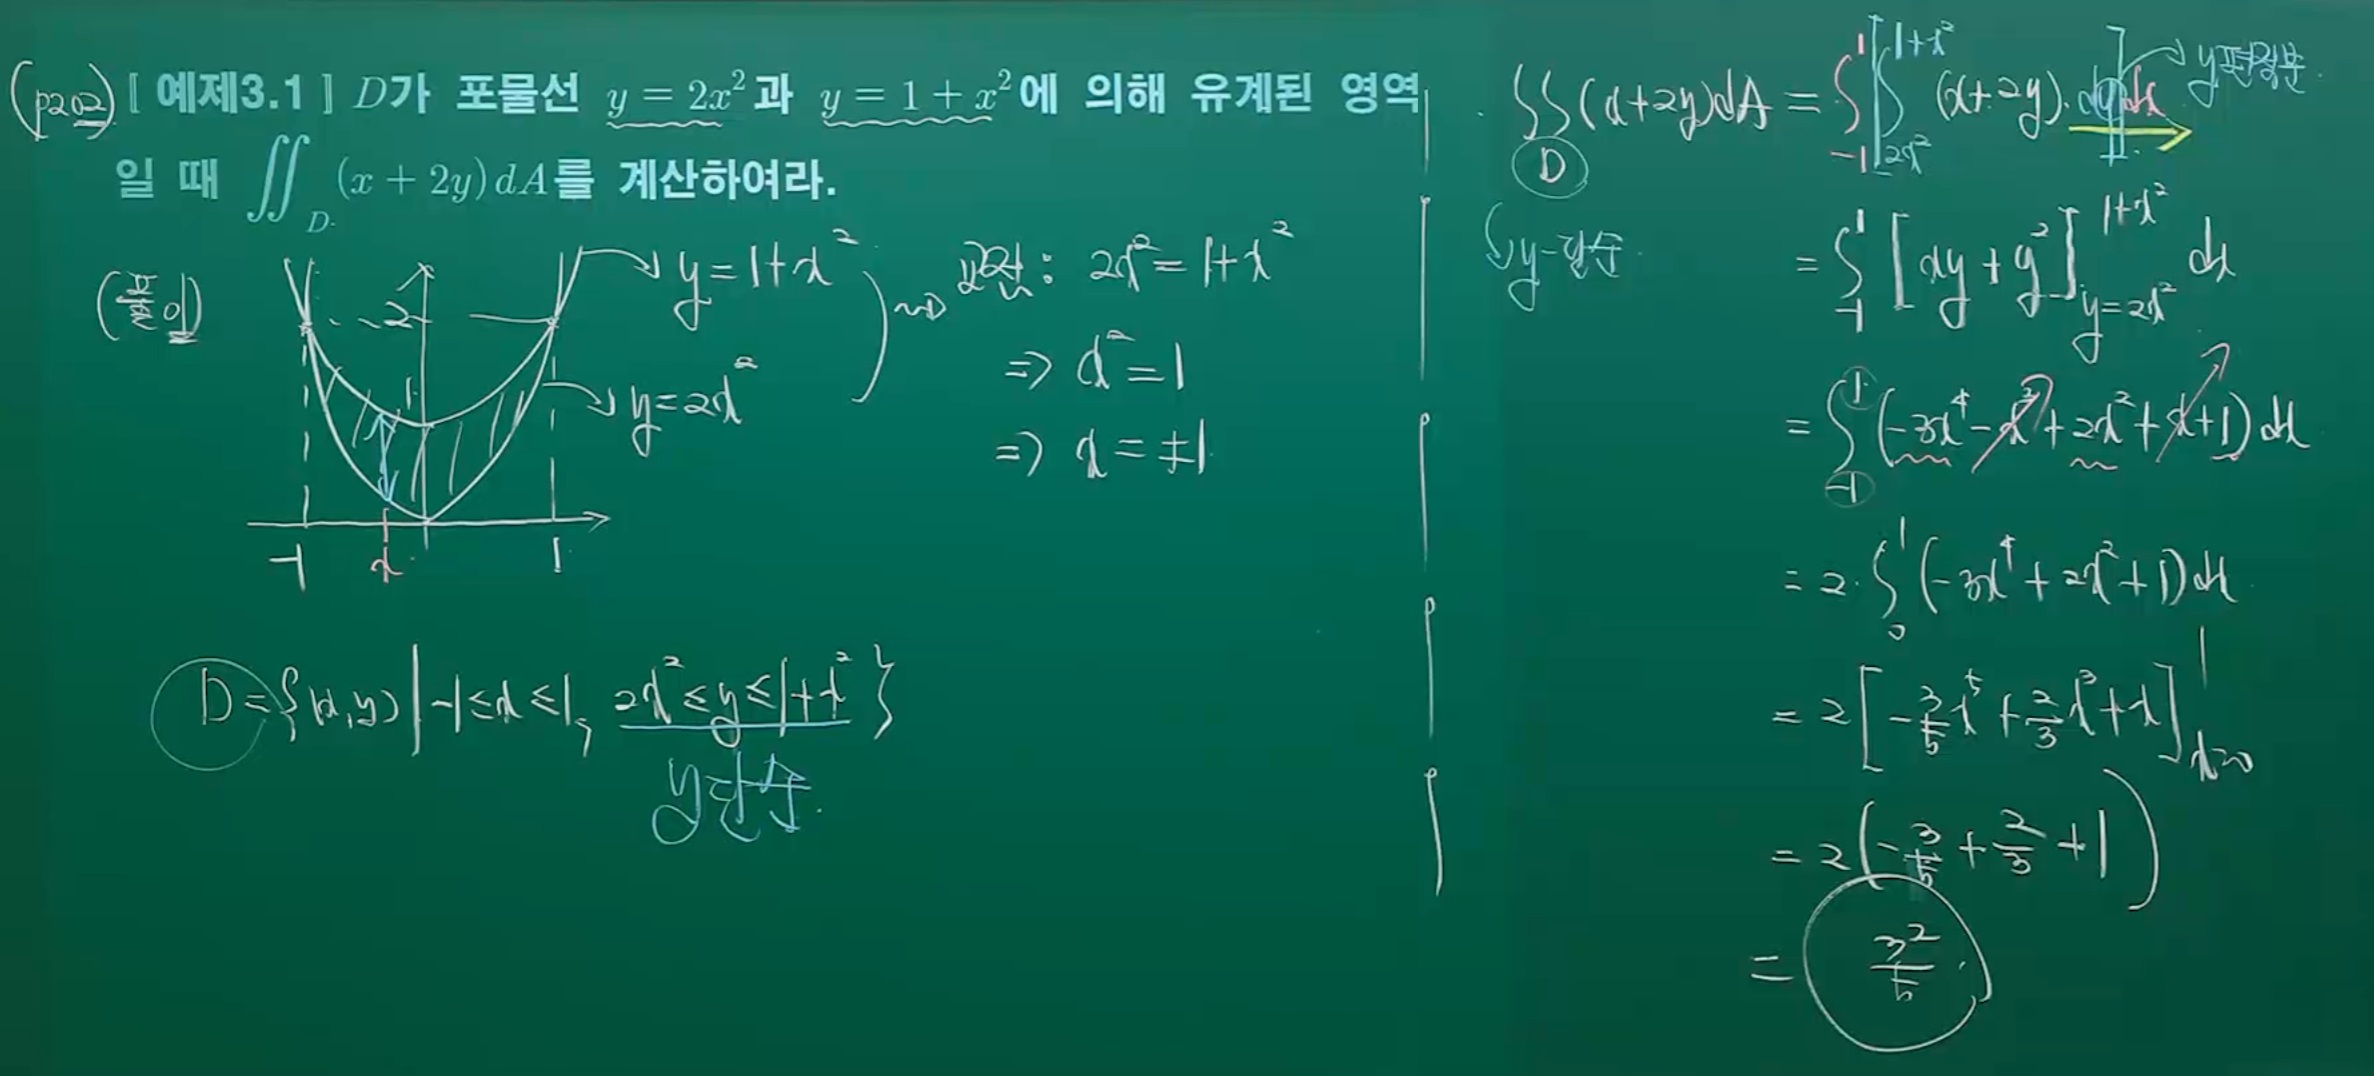 (p202) [ 예제3.1 ] D가 포물선 y = 2x²과 y = 1 + x²에 의해 유계된 영역
일 때 ∬_D (x + 2y) dA를 계산하여라.
(풀이)
y=1+x²
2
1
y=2x²
-1 x 1
교점: 2x²=1+x²
⇒ x²=1
⇒ x=±1
D={(x,y) | -1≤x≤1, 2x²≤y≤1+x²}
y단순
∬_D (x+2y)dA = ∫_{-1}^{1} ∫_{2x²}^{1+x²} (x+2y) dy dx
y편적분
y-단순
= ∫_{-1}^{1} [xy+y²]_{y=2x²}^{1+x²} dx
= ∫_{-1}^{1} (-3x⁴-x³+2x²+x+1) dx
= 2 ∫_0^1 (-3x⁴+2x²+1) dx
= 2 [-3/5 x⁵ + 2/3 x³ + x]_{x=0}^{1}
= 2 (-3/5 + 2/3 + 1)
= 32/15